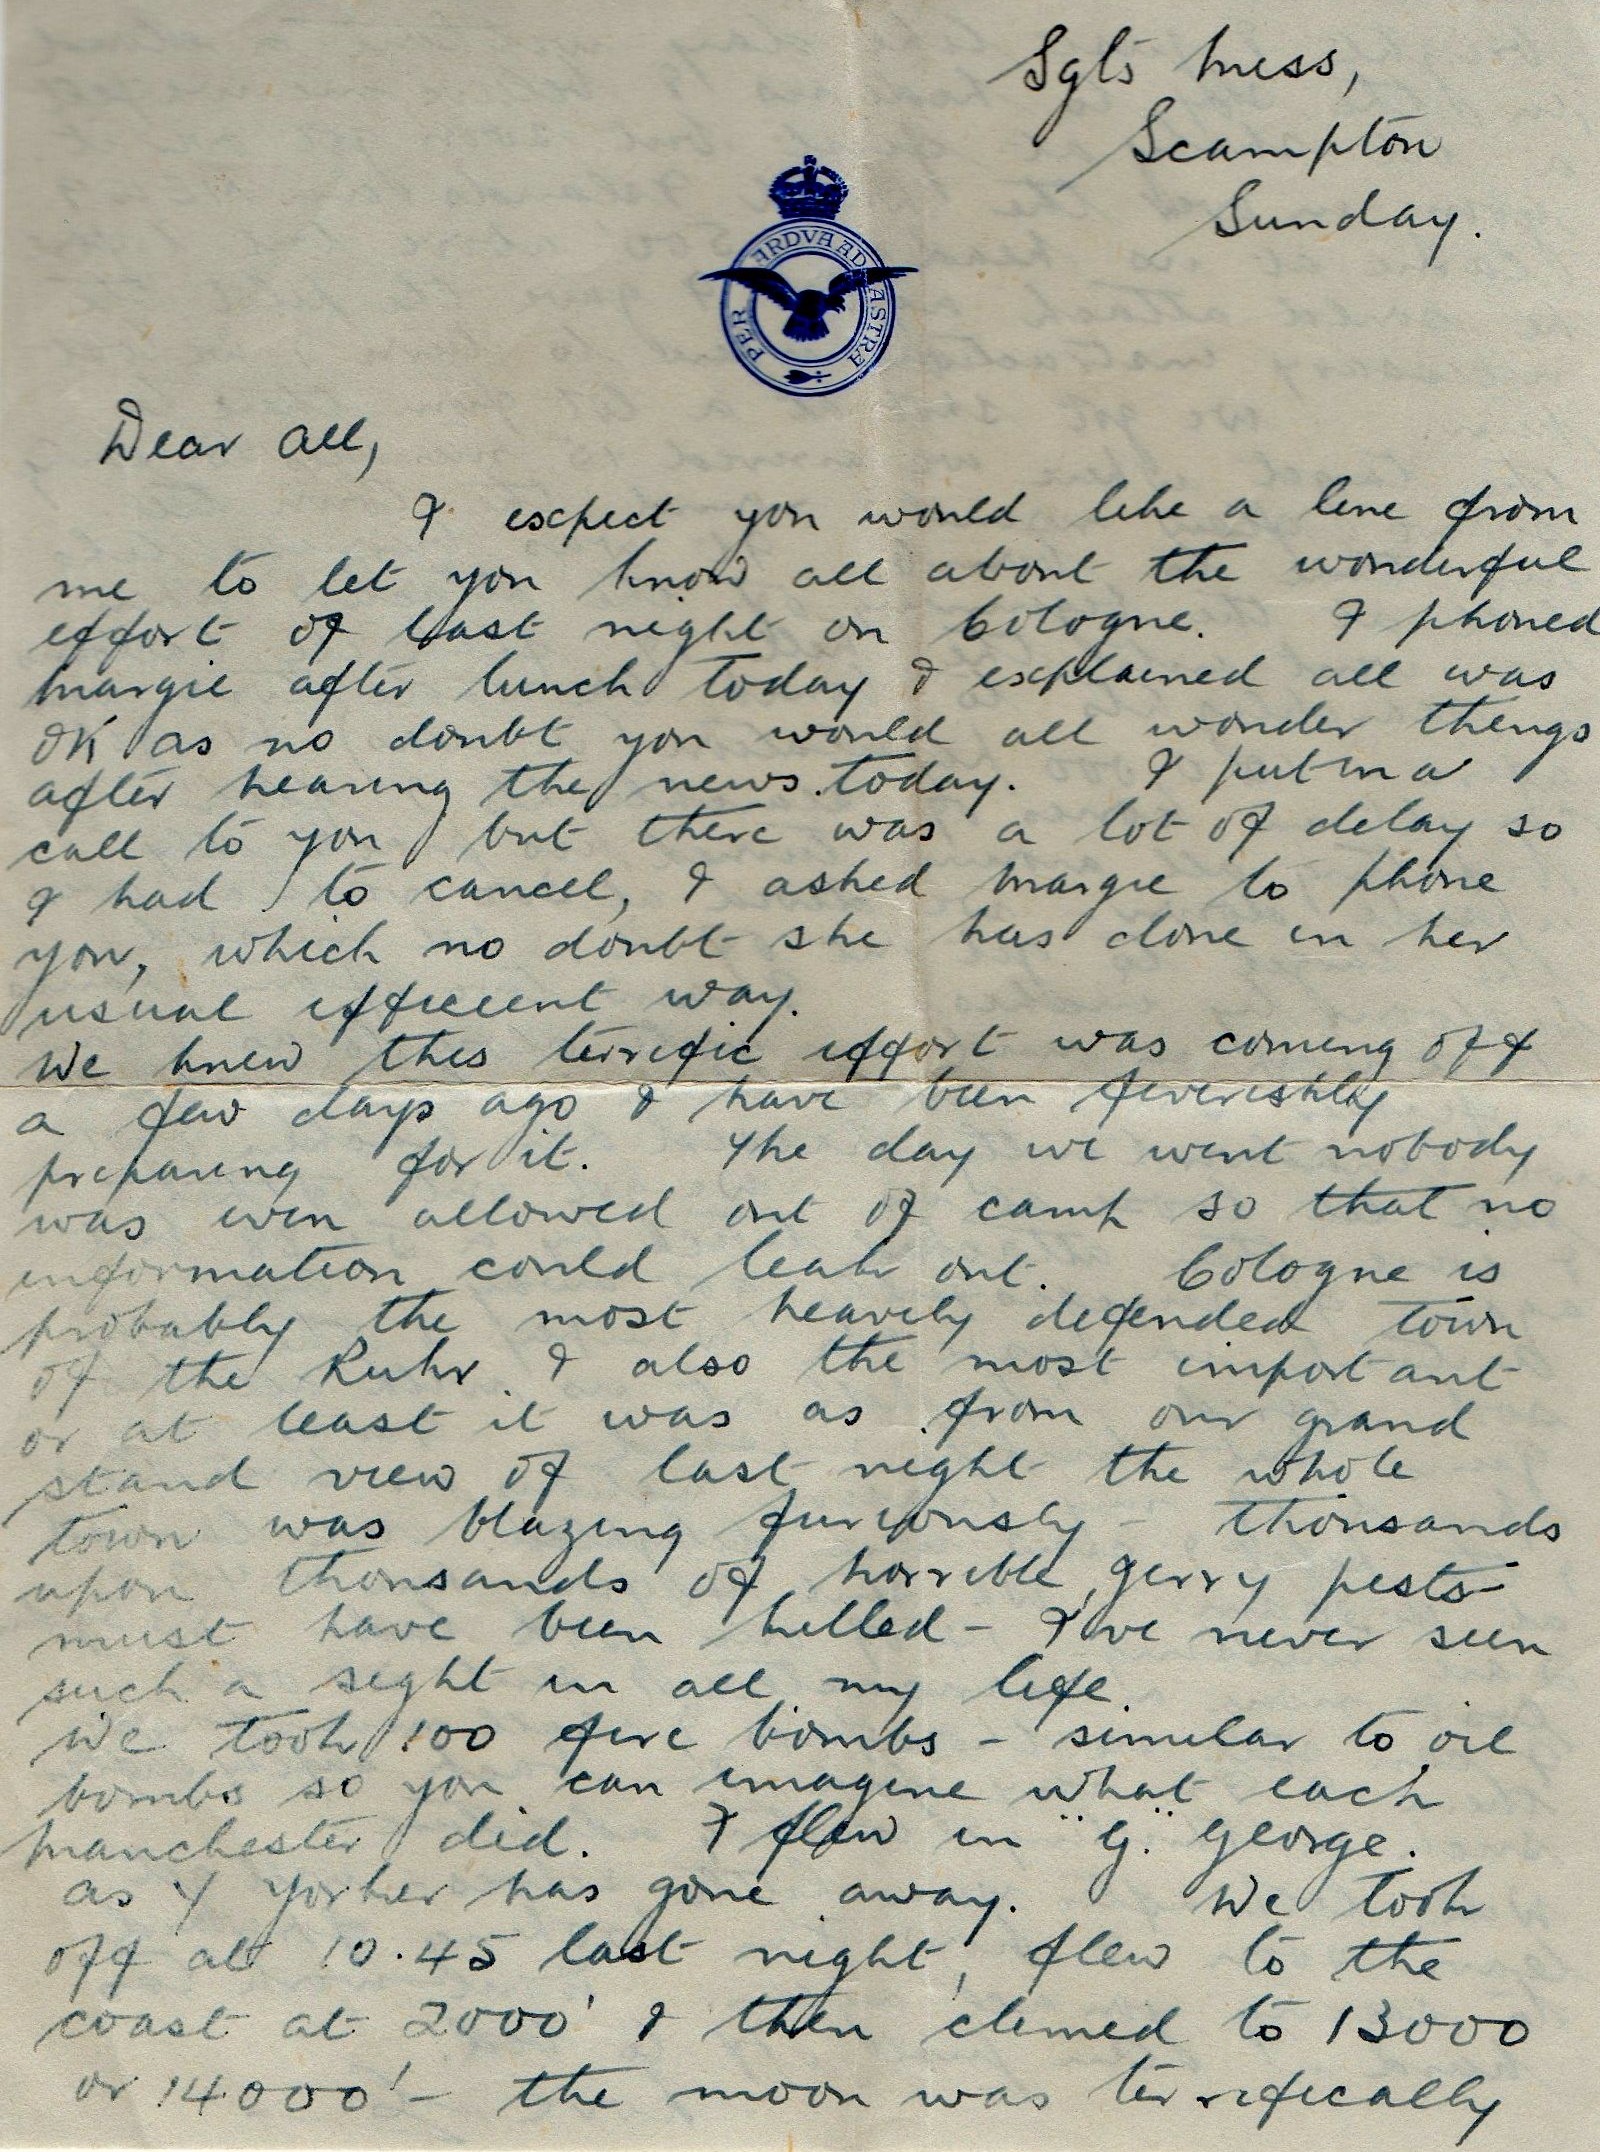 Sgts Mess,
Scampton
Sunday.
PER ARDVA AD ASTRA
Dear All,
I expect you would like a line from
me to let you know all about the wonderful
effort of last night on Cologne. I phoned
Margie after lunch today & explained all was
OK as no doubt you would all wonder things
after hearing the news today. I put in a
call to you but there was a lot of delay so
I had to cancel, I asked Margie to phone
you, which no doubt she has done in her
usual efficient way.
We knew this terrific effort was coming off
a few days ago & have been feverishly
preparing for it. The day we went nobody
was even allowed out of camp so that no
information could leak out. Cologne is
probably the most heavily defended town
of the Ruhr & also the most important
or at least it was as from our grand
stand view of last night the whole
town was blazing furiously - thousands
upon thousands of horrible gerry pests
must have been killed - I've never seen
such a sight in all my life.
We took 100 fire bombs - similar to oil
bombs so you can imagine what each
Manchester did. I flew in "G" George.
as Y Yorker has gone away. We took
off at 10.45 last night, flew to the
coast at 2000' & then climed to 13000
or 14000' - the moon was terrifically